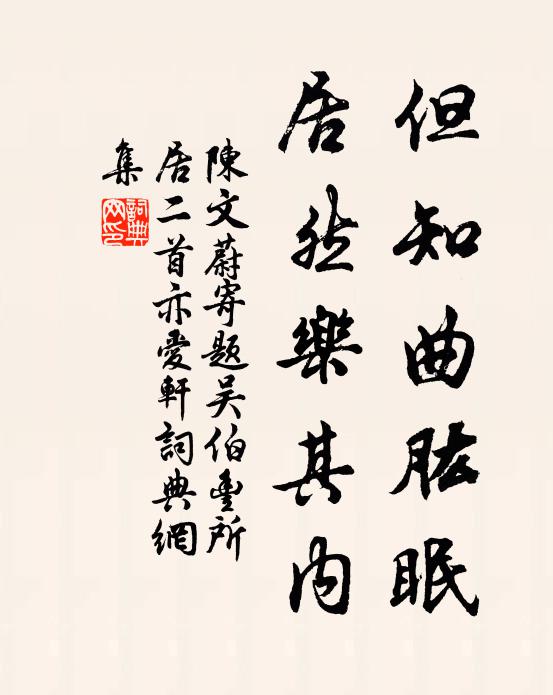 但知曲肱眠
居然樂其內
陳文蔚寄題吴伯豐所
居二首亦愛軒詞典網
集
詞典網印